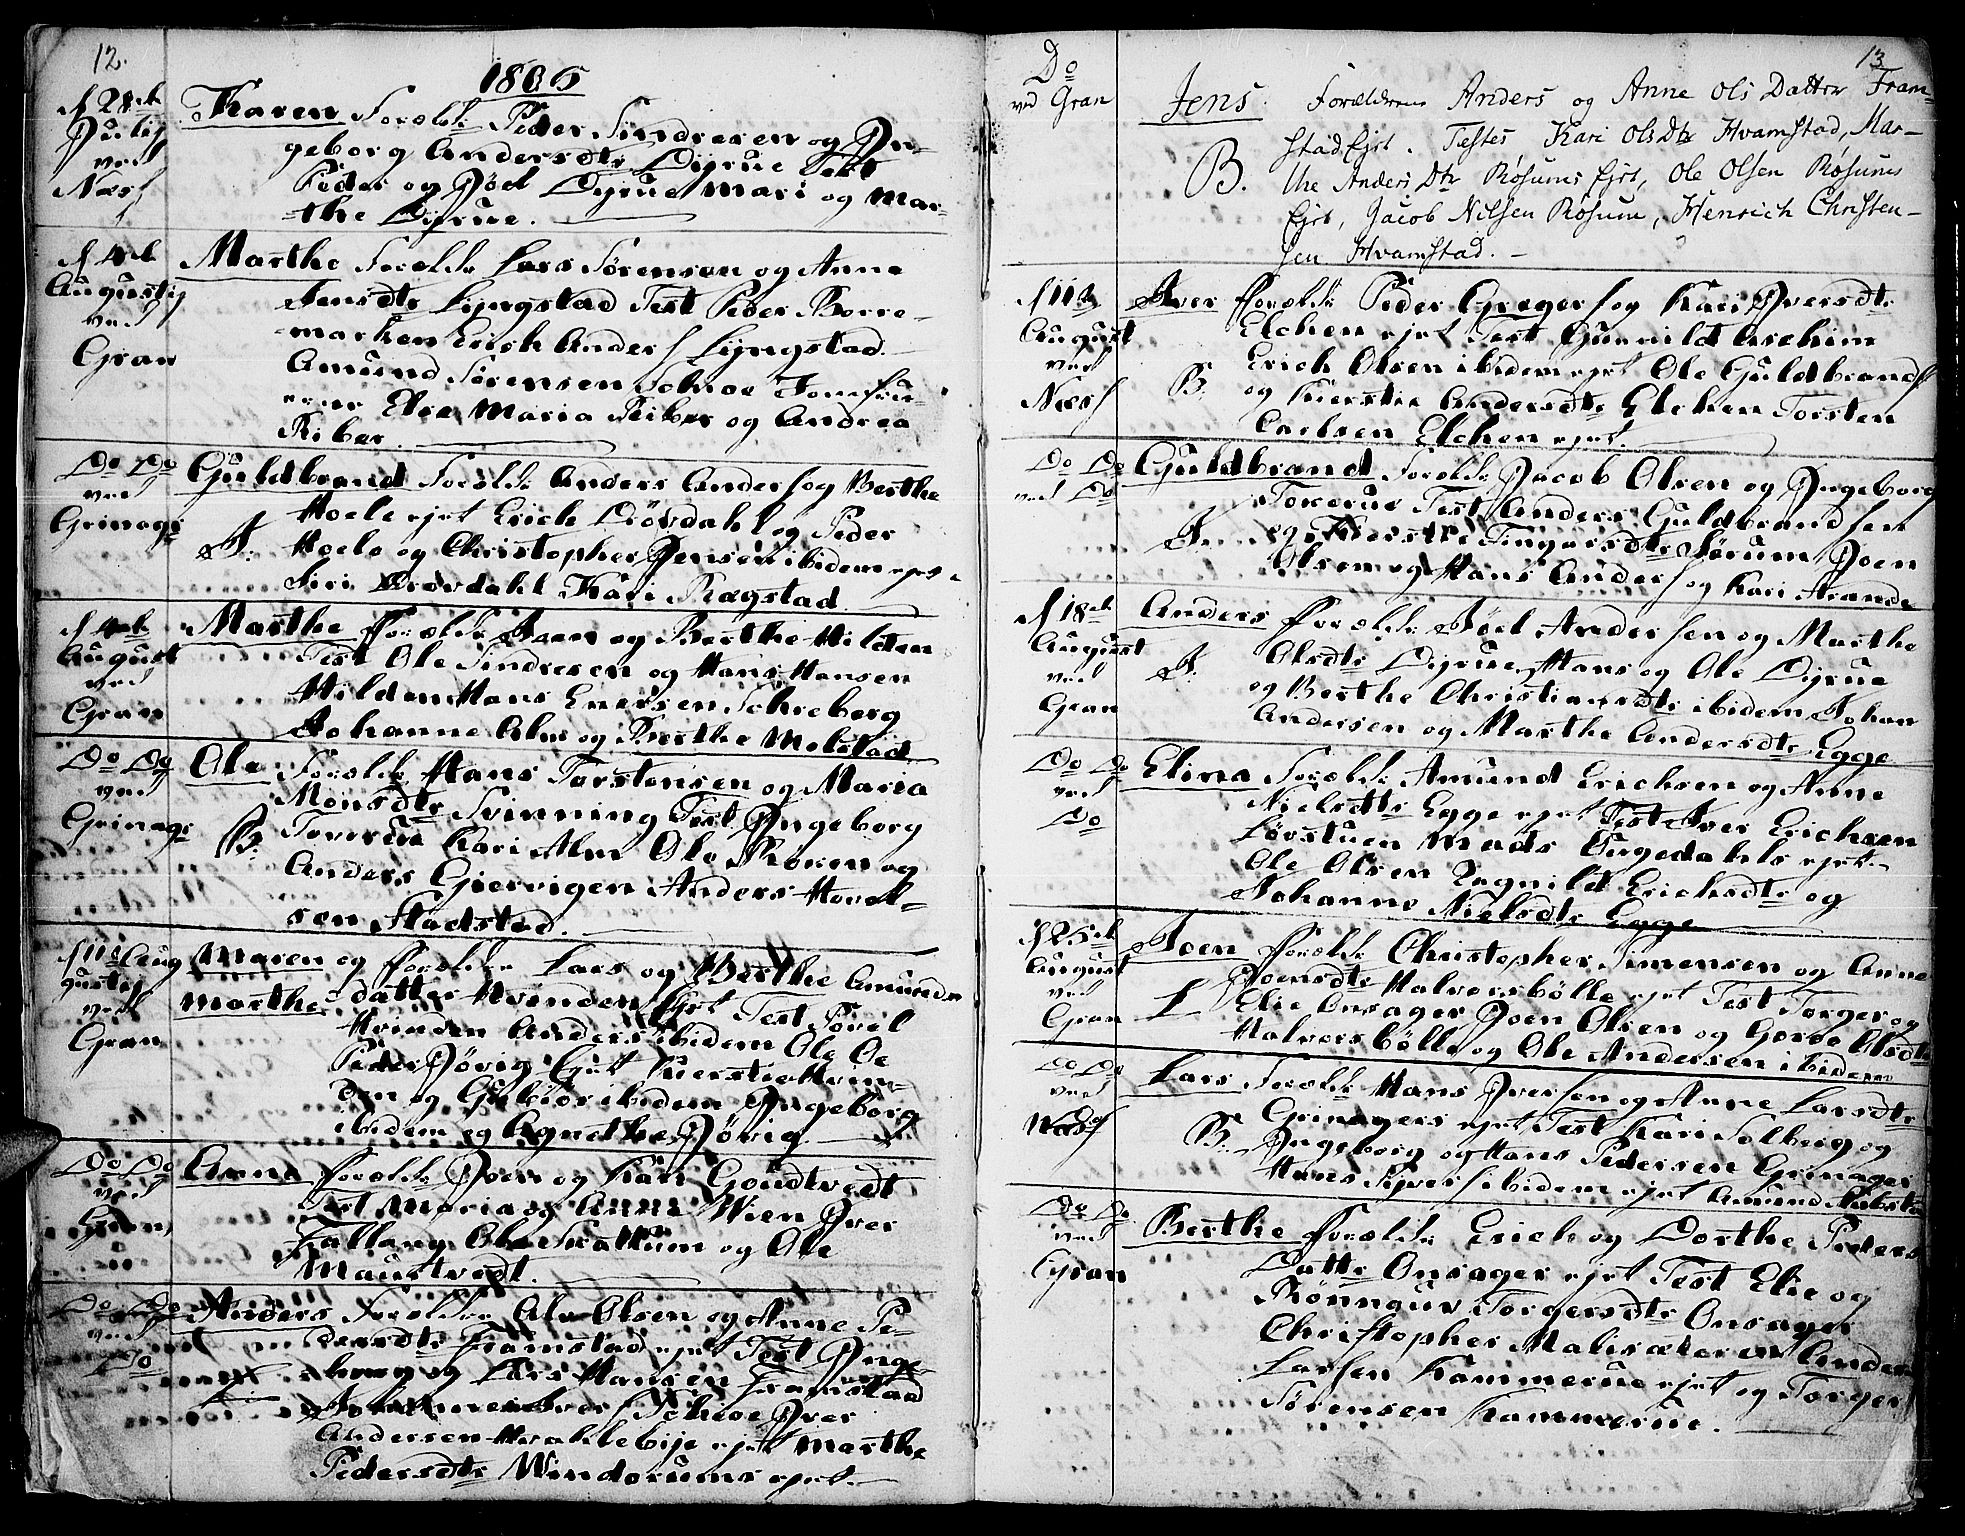 12.
1805
d 28de
Julij
ved
Næs
Karen Foreldr Peder Sindresen og In-
geborg Andersdtr Dijrue Test
Peder og Jöel Dijrue Mari og Mar-
-the Dijrue.
d 4de
Augustij
ved
Gran
Marthe Foreldr Lars Sörensen og Anne
Jensdtr Lijngstad Test Peder Borre-
marken Erich Anders Lijngstad
Amund Sörensen Jomfru-
Else Maria Riber og Andrea
Riber.
Do Do
ved
Grinager
Guldbrand Foreldr Anders Anders og Berthe
Hoele ejet Erich Drövdahl og Peder
F. Hoele og Christopher Jensen ibidem ejet
Siri Drövdahl Kari Rægstad
d 4de
August
ved
Gran
Marthe Foreldr Iven og Berthe Hilden
Test Ole Sindresen og Hans Hansen
Hilden Hans Eversen Schreberg
Johanne Alm og Berthe Molstad
Do Do
ved
Grinager
Ole Foreldr Hans Torstensen og Maria
Monsdtr Svinning Test Ingeborg
B. Toverud Kari Alm Ole Rören og
Anders Gjervigen Anders Hovel-
sen Stadstad.
d 11te Aug
gustij
ved
Gran
Maren og Foreldre Lars og Berthe Amunds
Marthe datter Hvinden Ejet Test Povel
Hvinden Anders ibidem Ole
Peder Jövig Ejet Kierstie Hvin-
den og Gubiör ibidem Ingeborg
ibidem og Agnethe Jövig
Do Do
ved
Gran
Anne Foreldr Iven og Kari Goudtvedt
Test Maria og Anne Wien Iver
Fallang Ole Skattum og Ole
Maurtvedt.
Do Do
ved
Do
Anders Foreldre Ole Olsen og Anne Pe-
dersdtr Framstad ejet Test Inge-
borg og Lars Hansen Framstad
Iver
Andersen Hvattebije ejet Marthe
Pedersdtr Windorums ejet
13
Do
ved Gran
Jens. Forældrene Anders og Anne Ols Datter Fram-
stadEjet. Testes Kari OlsDtr Hvamstad, Mar-
B. the Anders Dtr Røsums Ejet, Ole Olsen Røsums
Ejet, Jacob Nilsen Røsum, Henrich Christen-
sen Hvamstad.
d 11te
August
ved
Næs
Iver Foreldr Peder Gregers og Kari Iversdtr
Elchen ejet Test Gunnild Aschim
Erich Olsen ibidem ejet Ole Guldbrands
B. og Kierstie Andersdtr Elchen Torsten
Carlsen Elchen ejet.
Do Do
ved Do
Guldbrand Foreldr Jacob Olsen og Ingeborg
Tokerue Test Anders Guldbrandsen
F. og Kierstie Tingersdtr Sörum Joen
Olsen og Hans Anders og Kari Aranda
d 18de
August
ved
Gran
Anders Foreldr Jöel Andersen og Marthe
F. Olsdtr Dijrue, Hans og Ole Dijrue
og Berthe Christiansdtr ibidem Johan
Andersen og Marthe Andersdtr Egge
Do Do
ved
Do
Elina Foreldr Amund Erichsen og Anne
Nielsdtr Egge ejet Test Iver Erichsen
Lövstuen Mads Ougedahls ejet
Ole Olsen Ragnild Erichsdtr og
Johanne Nielsdtr Egge
d 25de
August
ved
Gran
Joen Foreldr Christopher Simensen og Anne
Joensdtr Halvorsbölle ejet Test Torger og
Elie Onsager Joen Olsen og Goroe Olsdtr
Halvorsbölle og Ole Andersen ibidem
Do Do
ved
Lars Foreldr Hans Iversen og Anne Larsdtr
Grinagers ejet Test Kari Solberg og
B. Ingeborg og Hans Pedersen Grinager
Hans Sivers ibidem ejet Amund
Do Do
ved
Gran
Berthe Foreldr Erich og Dorthe Peders
Dattr Onsager ejet Test Elie og
Rönnouv Torgersdtr Onsager
Christopher Malisæteren Anders
Larsen Kammerue ejet og Torger
Sörensen Kammerue.